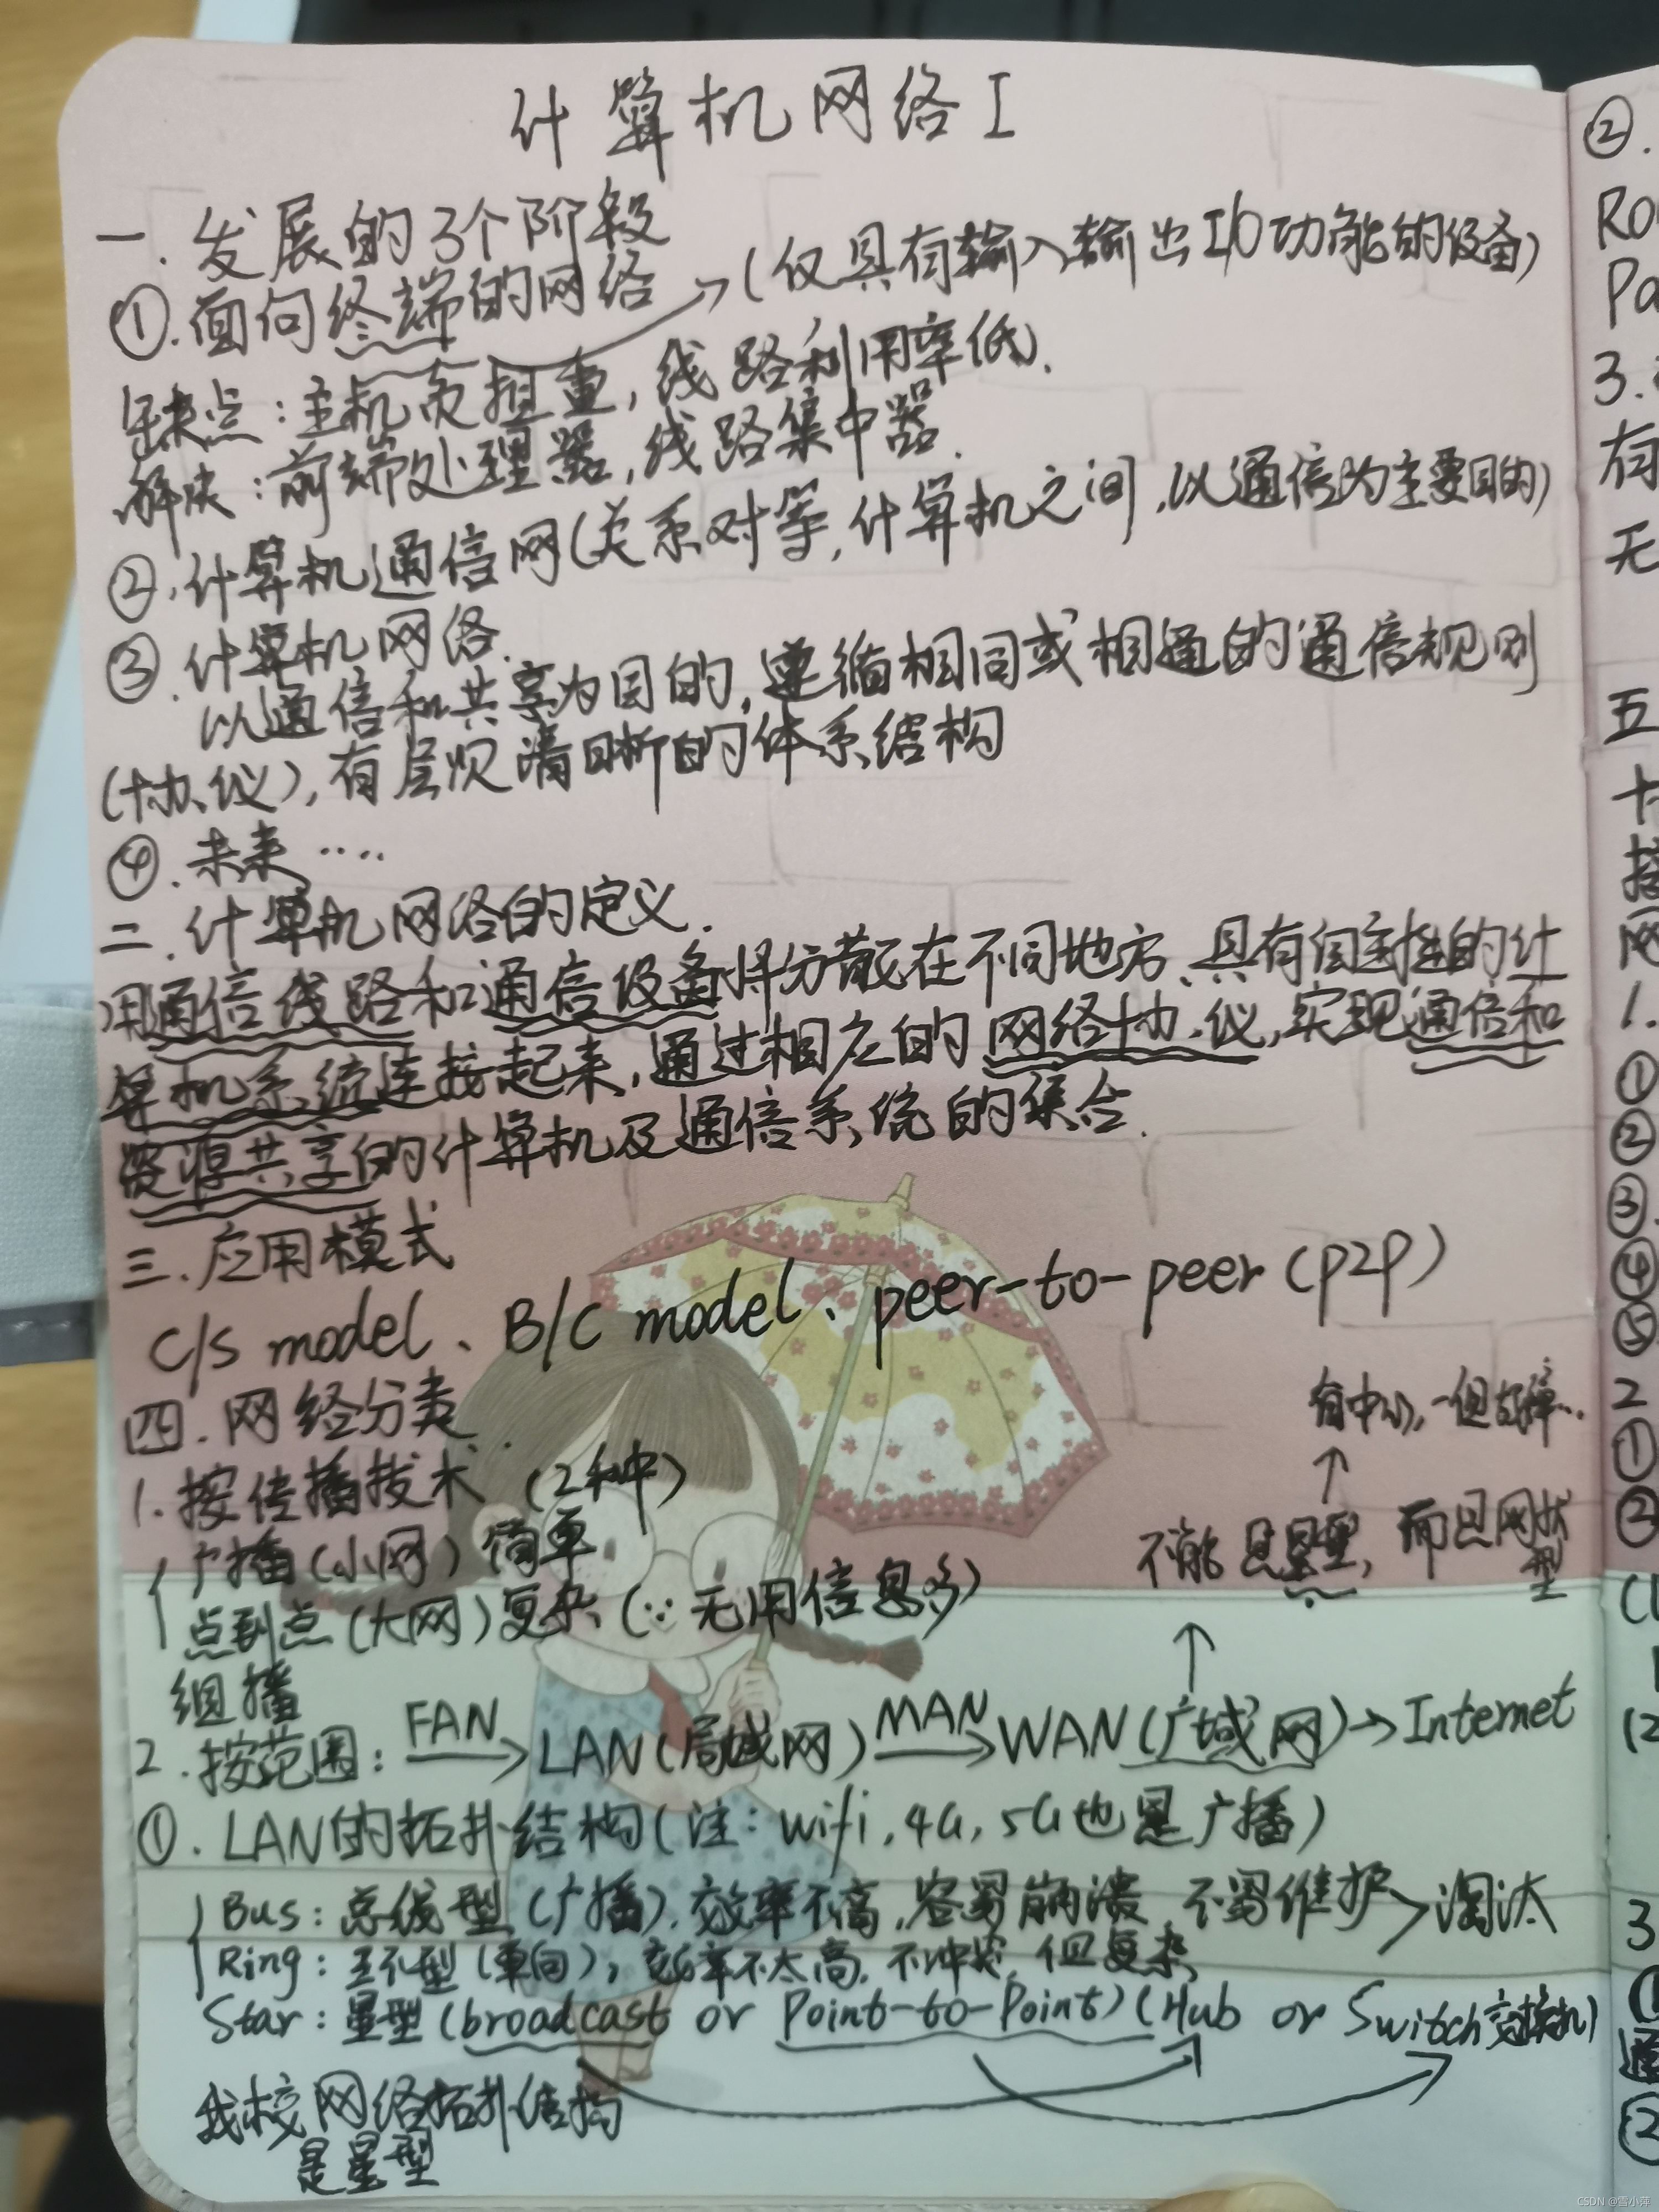 计算机网络I
一.发展的3个阶段
①.面向终端的网络→(仅具有输入输出I/O功能的设备)
缺点:主机负担重,线路利用率低.
解决:前端处理器,线路集中器.
②.计算机通信网(关系对等,计算机之间,以通信为主要目的)
③.计算机网络.
以通信和共享为目的,遵循相同或相通的通信规则
(协议),有层次清晰的体系结构
④.未来....
二.计算机网络的定义.
用通信线路和通信设备将分散在不同地方、具有自主性的计
算机系统连接起来,通过相应的网络协议,实现通信和
资源共享的计算机及通信系统的集合.
三.应用模式
C/S model、B/C model、peer-to-peer(P2P)
四.网络分类.
有中心,一但故障..
↑
1.按传播技术(2种)
不能是星型,而是网状型
广播(小网)简单
点到点(大网)复杂(∵无用信息多)
↑
组播
2.按范围: FAN→LAN(局域网) MAN→WAN(广域网)→Internet
①.LAN的拓扑结构(注:wifi,4G,5G也是广播)
Bus:总线型(广播).效率不高,容易崩溃 不易维护→淘汰
Ring:环型(单向),效率不太高.不冲突,但复杂
Star:星型(broadcast or Point-to-Point)(Hub or Switch交换机)
我校网络拓扑结构
是星型
②.
3.
有
无
五
网
1.
①
②
③.
④
⑤
2
①
②
3
通
②
CSDN @雪小萍